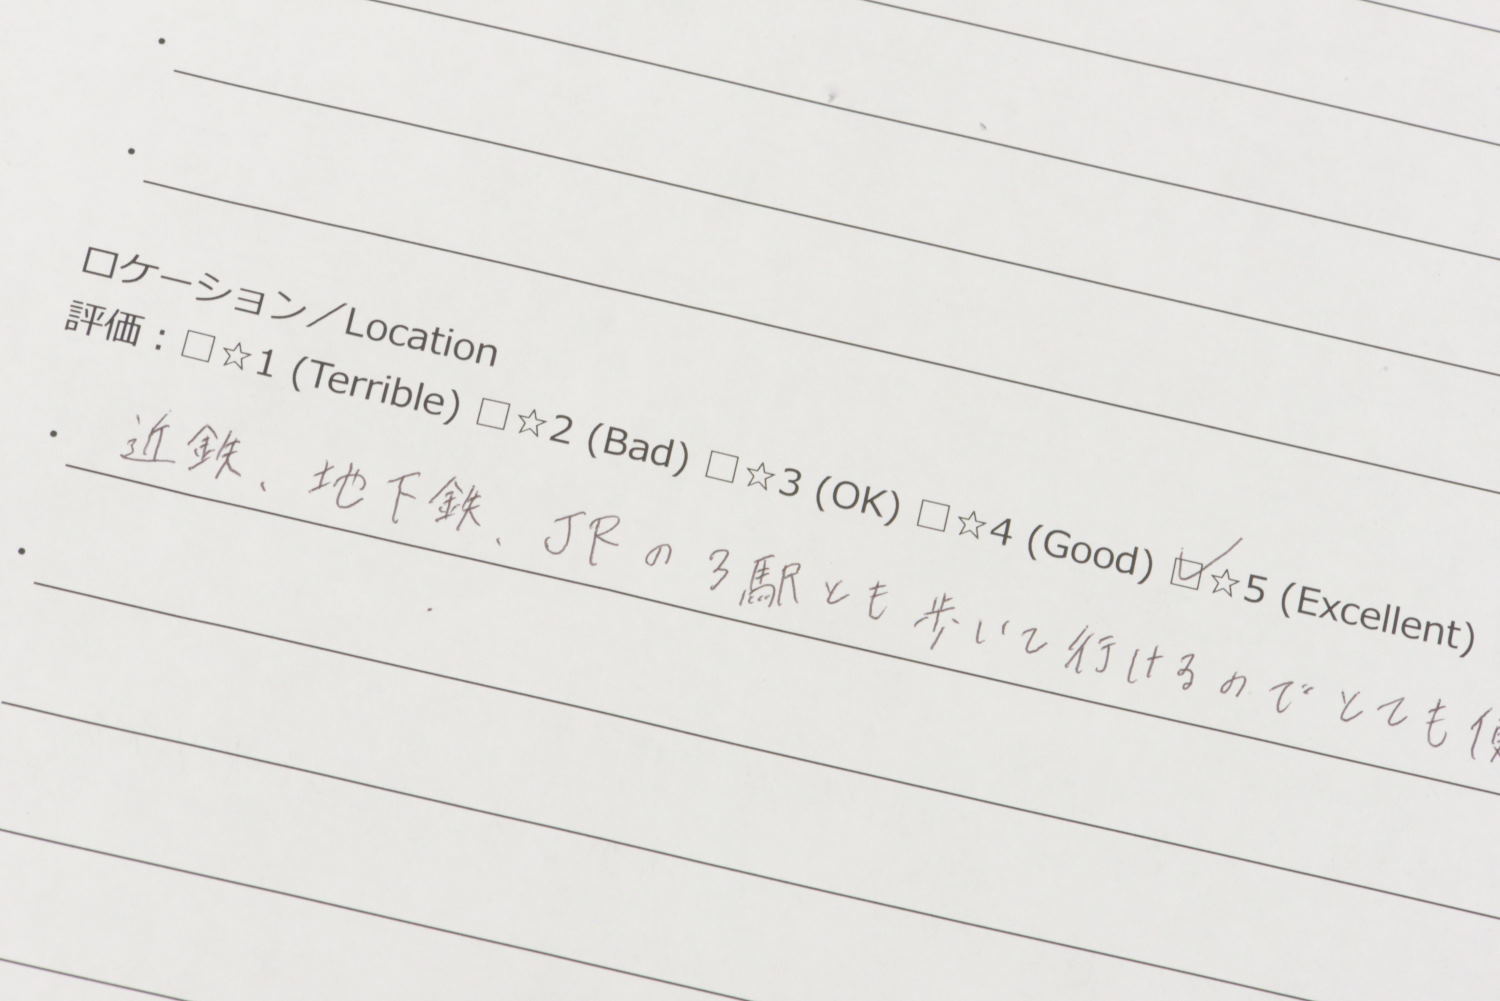 ロケーション／Location
評価：□☆1 (Terrible) □☆2 (Bad) □☆3 (OK) □☆4 (Good) ☑☆5 (Excellent)
・近鉄、地下鉄、JRの3駅とも歩いて行けるのでとても便